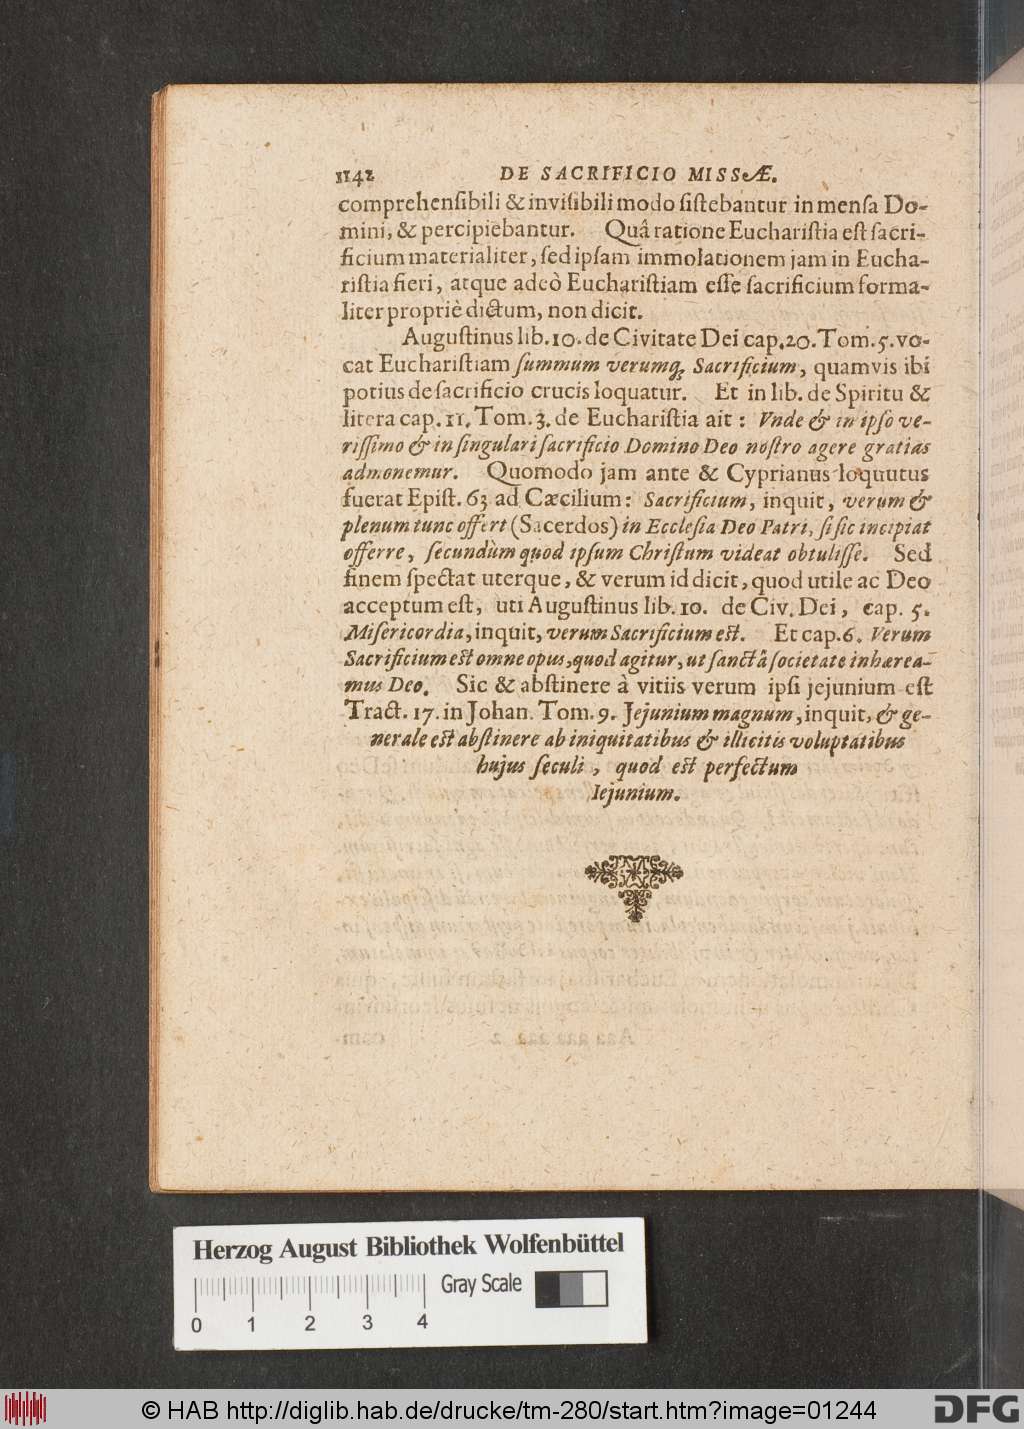 1142 DE SACRIFICIO MISSÆ.
comprehenſibili & inviſibili modo ſiſtebantur in menſa Do-
mini, & percipiebantur. Quâ ratione Euchariſtia eſt ſacri-
ficium materialiter, ſed ipſam immolationem jam in Eucha-
riſtia fieri, atque adeò Euchariſtiam eſſe ſacrificium forma-
liter propriè dictum, non dicit.
Auguſtinus lib. 10. de Civitate Dei cap. 20. Tom. 5. vo-
cat Euchariſtiam ſummum verumq; Sacrificium, quamvis ibi
potius de ſacrificio crucis loquatur. Et in lib. de Spiritu &
litera cap. 11. Tom. 3. de Euchariſtia ait: Vnde & in ipſo ve-
riſſimo & in ſingulari ſacrificio Domino Deo noſtro agere gratias
admonemur. Quomodo jam ante & Cyprianus loquutus
fuerat Epiſt. 63 ad Cæcilium: Sacrificium, inquit, verum &
plenum tunc offert (Sacerdos) in Eccleſia Deo Patri, ſi ſic incipiat
offerre, ſecundùm quod ipſum Chriſtum videat obtuliſſe. Sed
finem ſpectat uterque, & verum id dicit, quod utile ac Deo
acceptum eſt, uti Auguſtinus lib. 10. de Civ. Dei, cap. 5.
Miſericordia, inquit, verum Sacrificium eſt. Et cap. 6. Verum
Sacrificium eſt omne opus, quod agitur, ut ſanctâ ſocietate inhærea-
mus Deo. Sic & abſtinere à vitiis verum ipſi jejunium eſt
Tract. 17. in Johan. Tom. 9. Jejunium magnum, inquit, & ge-
nerale eſt abſtinere ab iniquitatibus & illicitis voluptatibus
hujus ſeculi, quod eſt perfectum
Iejunium.
Herzog August Bibliothek Wolfenbüttel
Gray Scale
0 1 2 3 4
© HAB http://diglib.hab.de/drucke/tm-280/start.htm?image=01244
DFG